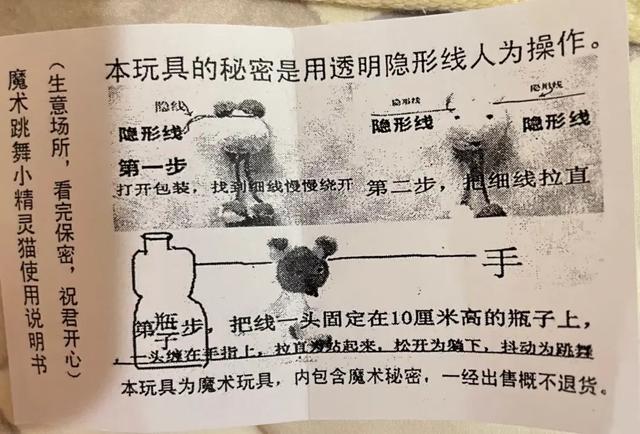 魔术跳舞小精灵猫使用说明书
(生意场所,看完保密,祝君开心)
本玩具的秘密是用透明隐形线人为操作。
隐线
隐形线
第一步
打开包装,找到细线慢慢绕开
隐形线
隐形线
隐形线
隐形线
第二步,把细线拉直
手
瓶子
第三步,把线一头固定在10厘米高的瓶子上,
一头缠在手指上,拉直为站起来,松开为躺下,抖动为跳舞
本玩具为魔术玩具,内包含魔术秘密,一经出售概不退货。